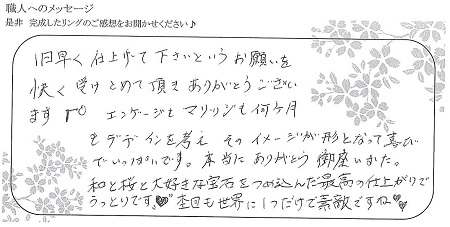 職人へのメッセージ
是非 完成したリングのご感想をお聞かせください♪
1日早く 仕上げて下さいというお願いを
快く受けとめて頂き ありがとうござい
ます エンゲージも マリッジも何ケ月
もデザインを考え そのイメージが形となって喜び
でいっぱいです。本当に ありがとう御座いました。
和と桜と大好きな宝石をつめ込んだ最高の仕上がりで
うっとりです 世界に1つだけで素敵ですね